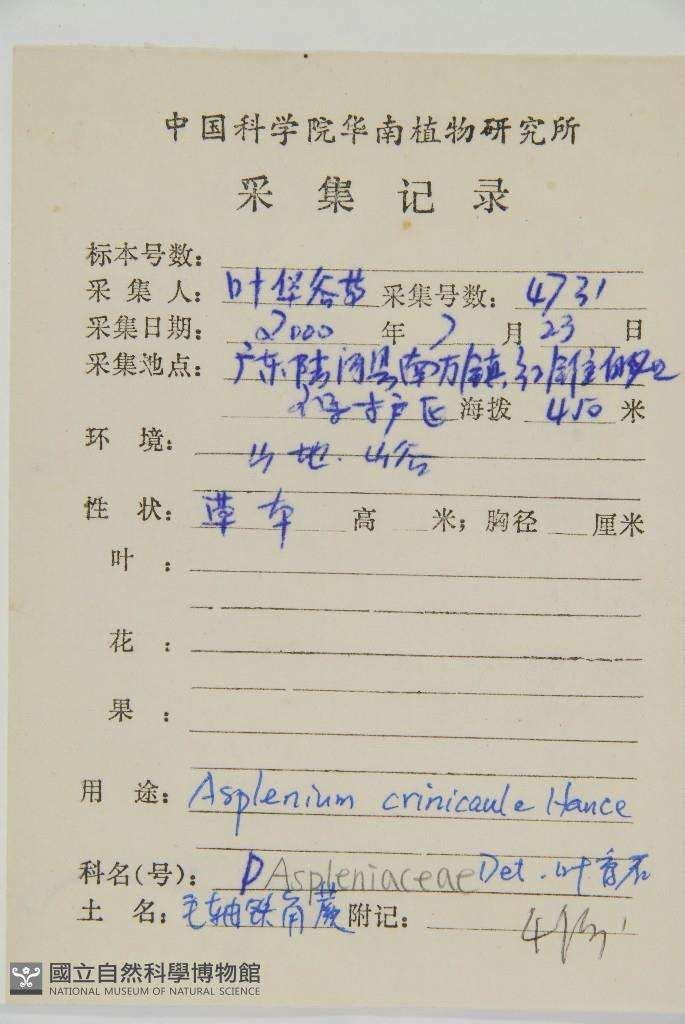 中国科学院华南植物研究所
采集记录
标本号数:
采集人: 叶华谷等 采集号数: 4731
采集日期: 2000 年 7 月 23 日
采集地点: 广东陆河县南万镇红锥
保护区 海拔 450 米
环境: 山地.山谷
性状: 草本 高 米; 胸径 厘米
叶:
花:
果:
用途: Asplenium crinicaule Hance
科名(号): P Aspleniaceae Det. 叶
土名: 毛轴铁角蕨 附记:
國立自然科學博物館
NATIONAL MUSEUM OF NATURAL SCIENCE